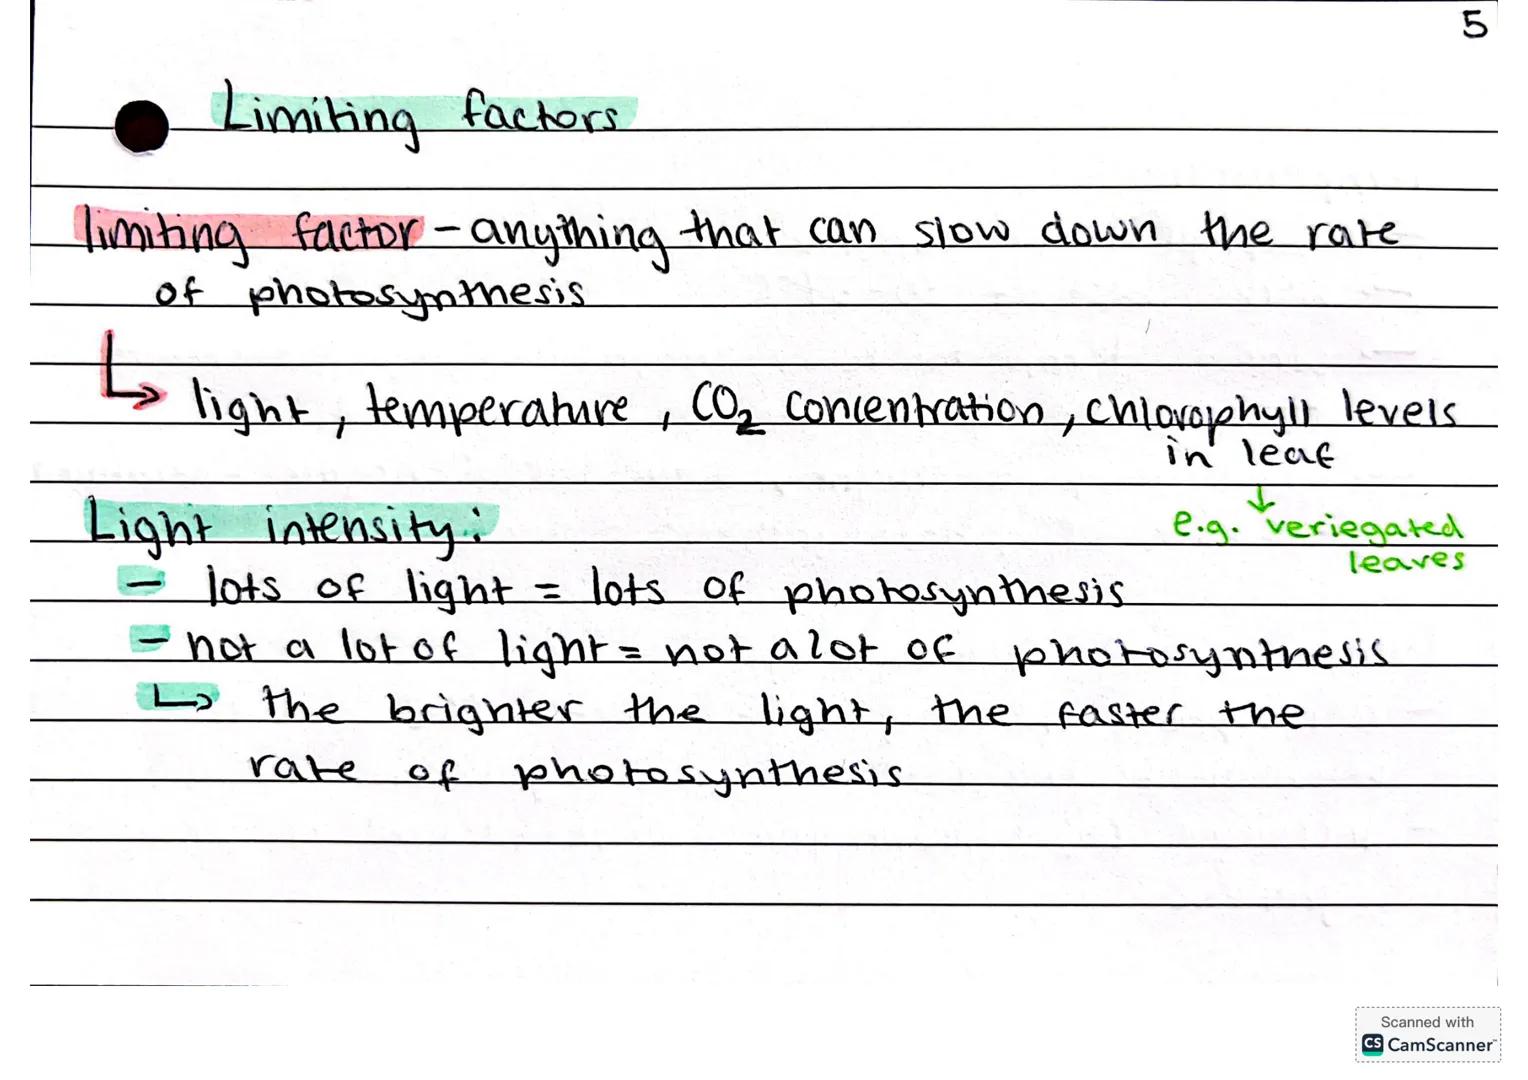 5
Limiting factors
limiting factor - anything that can slow down the rate
of photosynthesis
↳ light, temperature, CO₂ concentration, chlorophyll levels
in leaf
↓
e.g. veriegated
leaves
Light intensity:
- lots of light = lots of photosynthesis
- not a lot of light = not a lot of photosynthesis
↳ the brighter the light, the faster the
rate of photosynthesis
Scanned with
CS CamScanner